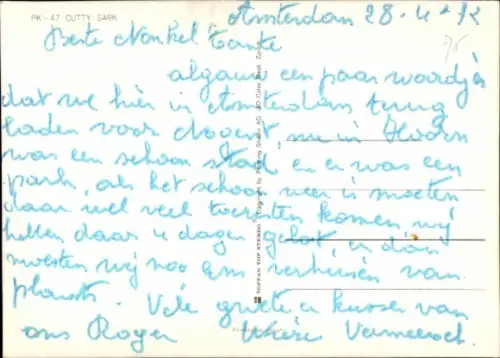 PK-47 CUTTY SARK
Amsterdam 28-4-72
Beste Nonkel Tante
algauw een paar woordjes
dat we hier in Amsterdam terug
laden voor
was een schoon stad en er was een
park, als het schoon weer is moeten
daar wel veel toeristen komen, wij
hebben daar 4 dagen gelost, en dan
moesten wij nog eens verhuisen van
plaats. Vele groeten en kussen van
ons Roger Vermeersch
TOPPAN TOP STEREO